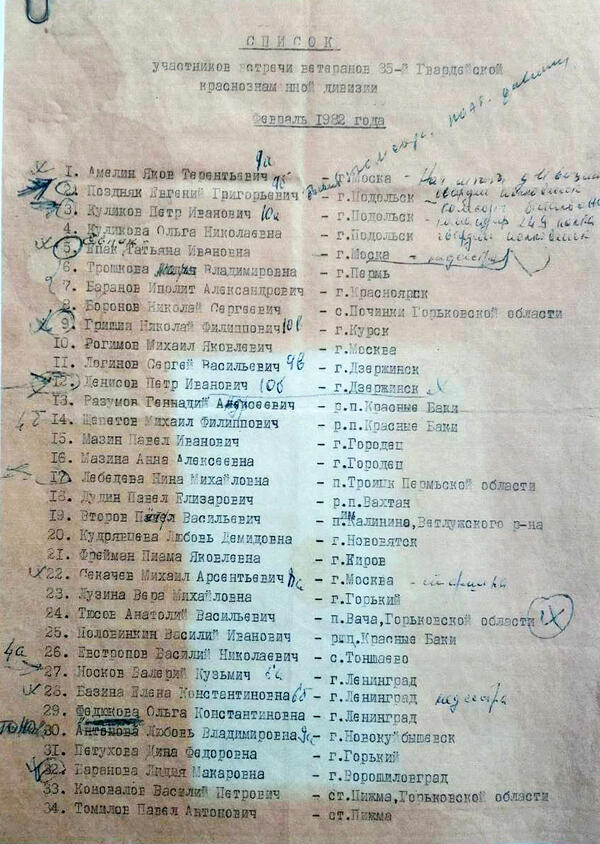 СПИСОК
участников встречи ветеранов 35-й Гвардейской
краснознам нной дивизии
Февраль 1982 года
1. Амелин Яков Терентьевич 9а - г.Моска
2. Поздняк Евгений Григорьевич 9б - г.Подольск
3. Куликов Петр Иванович 10а - г.Подольск
4. Куликова Ольга Николаевна - г.Подольск
5. Татьяна Ивановна - г.Моска
6. Трошкова Владимировна - г.Пермь
7. Баранов Иполит Александрович - г.Красноярск
8. Боронов Николай Сергеевич - с.Починки Горьковской области
9. Гришин Николай Филиппович 10в - г.Курск
10. Рогимов Михаил Яковлевич - г.Москва
11. Логинов Сергей Васильевич 9в - г.Дзержинск
12. Денисов Петр Иванович 10б - г.Дзержинск
13. Разумов Геннадий - р.п.Красные Баки
14. Шепетов Михаил Филиппович - р.п.Красные Баки
15. Мазин Павел Иванович - г.Городец
16. Мазина Анна Алексеевна - г.Городец
17. Лебедева Нина Михайловна - п.Троицк Пермьской области
18. Дудин Павел Елизарович - р.п.Вахтан
19. Второв Васильевич - п.Калинино,Ветлужского р-на
20. Кудрявцева Любовь Демидовна - г.Нововятск
21. Фрейман Пиама Яковлевна - г.Киров
22. Секачев Михаил Арсентьевич 8а - г.Москва
23. Лузина Вера Михайловна - г.Горький
24. Тюсов Анатолий Васильевич - п.Вача,Горьковской области IX
25. Половинкин Василий Иванович - Красные Баки
26. Евстропов Василий Николаевич - с.Тоншаево
4а
27. Носков Валерий Кузьмич - г.Ленинград
28. Базина Елена Константиновна - г.Ленинград
29. Федюкова Ольга Константиновна - г.Ленинград
30. Антонова Любовь Владимировна - г.Новокуйбышевск
31. Петухова Дина Федоровна - г.Горький
32. Баранова Лидия Макаровна - г.Ворошиловград
33. Коновалов Василий Петрович - ст.Пижма,Горьковской области
34. Томилов Павел Антонович - ст.Пижма